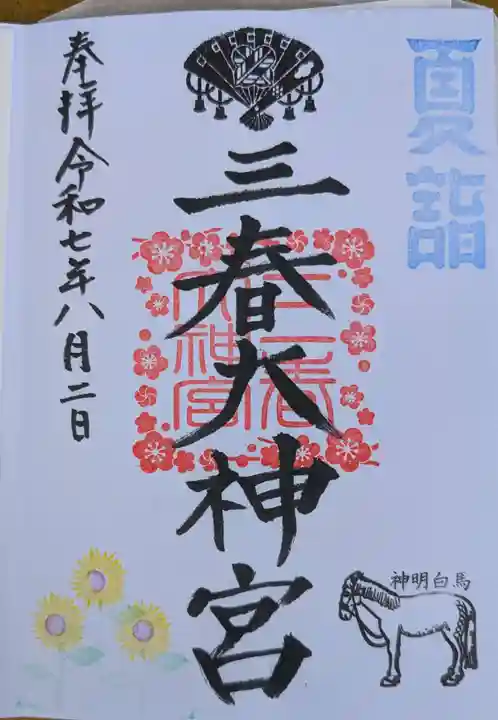 夏詣
三春大神宮
三春
大神宮
奉拝 令和七年八月二日
神明白馬